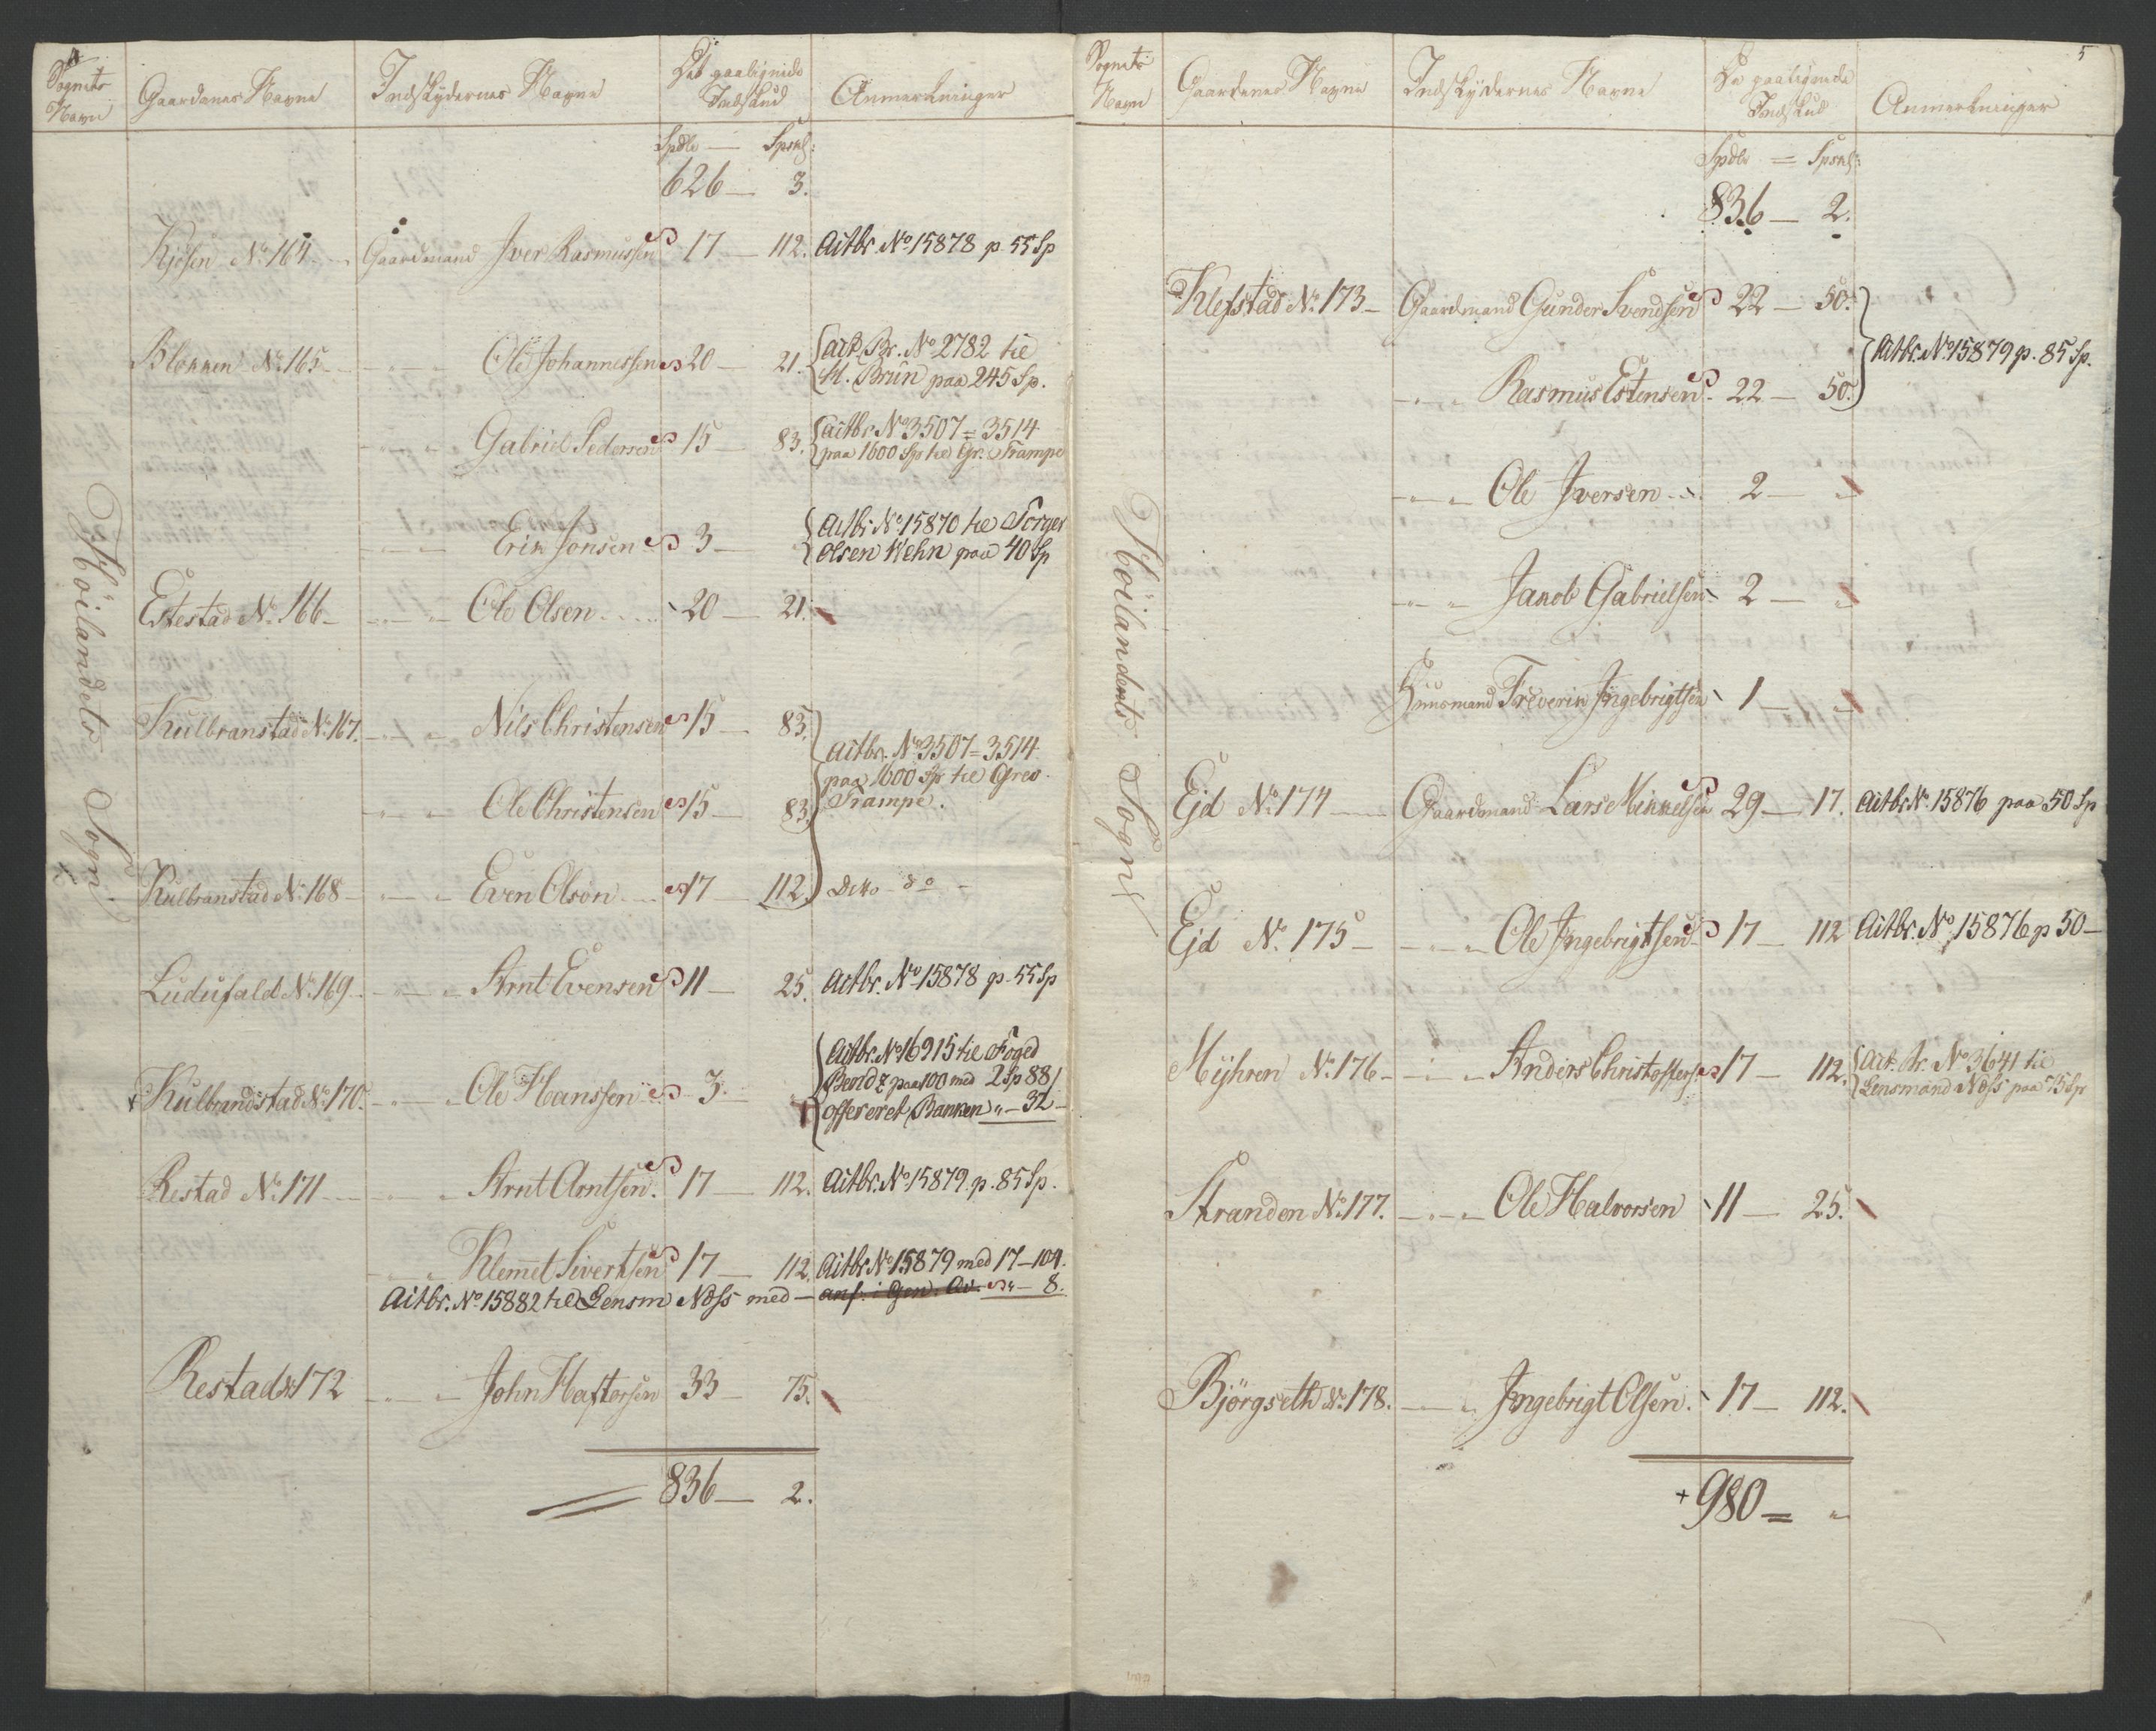 4
Sognets Navn
Gaardenes Navne
Indskydernes Navne
Det paalignede Indskud
Anmærkninger
Spdlr — Spskl:
626 — 3.
Höilandets Sogn
Kjösen No 164. Gaardmand Iver Rasmussen 17 — 112. Actbr. No 15878 p. 55 Sp
Blokken No 165 — „ — Ole Johannessen 20 — 21. Act. Br. No 2782 til
H. Brün paa 245 Sp.
— „ — Gabriel Pedersen 15 — 83. Actbr No 3507 = 3514
paa 1600 Sp til Gr. Trampe
— „ — Erik Jonsen 3 — Actbr No 15870 til Torger
Olsen Wehn paa 40 Sp
Estestad No 166 — „ — Ole Olsen 20 — 21.
Kulbranstad No 167. — „ — Nils Christensen 15 — 83.
Actbr. No 3507 = 3514
paa 1600 Sp til Grev
Trampe.
— „ — Ole Christensen 15 — 83.
Kulbranstad No 168 — „ — Even Olson 17 — 112. Ditto do —
Ludufald No 169. — „ — Arnt Evensen 11 — 25. Actbr. No 15878 p. 55 Sp
Kulbrandstad No 170. — „ — Ole Hanssen 3. Actbr. No 16915 til Foged
Bendz paa 100 med 2 Sp 88/
offereret Banken „ — 32 —
Restad No 171 — „ — Arnt Arntsen. 17 — 112. Actbr. No 15879 p. 85 Sp.
— „ — Klemet Sivertsen 17 — 112. Actbr No 15879 med 17 — 104.
Actbr. No 15882 til Lensm Næss med — anf. i Gen. Av. „ — 8.
Restad No 172 — „ — John Haftorsen 33 — 75.
836 — 2.
5
Sognets Navn
Gaardenes Navne
Indskydernes Navne
De paalignede Indskud
Anmærkninger
Spdlr = Spskl:
836 — 2.
Höilandets Sogn
Klefstad No 173 — Gaardmand Gunder Svendsen 22 — 50.
Actbr. No 15879 p. 85 Sp.
— „ — Rasmus Estensen 22 — 50.
— „ — Ole Iversen 2 — „
— „ — Jakob Gabrielsen 2 — „
Huusmand Ingebrigtsen 1 — „
Ejd No 174 — Gaardmand Lars Mikkelsen 29 — 17. Actbr No 15876 paa 50 Sp
Ejd No 175 — „ — Ole Ingebrigtsen 17 — 112 Actbr. No 15876 p 50 —
Myhren No 176 — „ — Anders Christoffers. 17 — 112. Act. Br. No 3641 til
Lensmand Næss paa 75 Sp
Stranden No 177. — „ — Ole Halvorsen 11 — 25.
Björgseth No 178. — „ — Ingebrigt Olsen. 17 — 112.
+ 980 = „